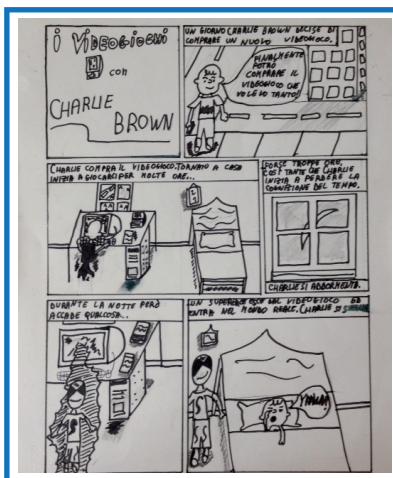 i VIDEOGIOCHI
con
CHARLIE
BROWN
UN GIORNO CHARLIE BROWN DECISE DI
COMPRARE UN NUOVO VIDEOGIOCO.
FINALMENTE
POTRÒ
COMPRARE IL
VIDEOGIOCO CHE
VOLEVO TANTO!!
CHARLIE COMPRA IL VIDEOGIOCO. TORNATO A CASA
INIZIA A GIOCARCI PER MOLTE ORE...
FORSE TROPPE ORE,
COSÌ TANTE CHE CHARLIE
INIZIA A PERDERE LA
COGNIZIONE DEL TEMPO.
CHARLIE SI ADDORMENTA.
DURANTE LA NOTTE PERÒ
ACCADE QUALCOSA..
UN SUPEREROE ESCE DAL VIDEOGIOCO ED
ENTRA NEL MONDO REALE. CHARLIE SI